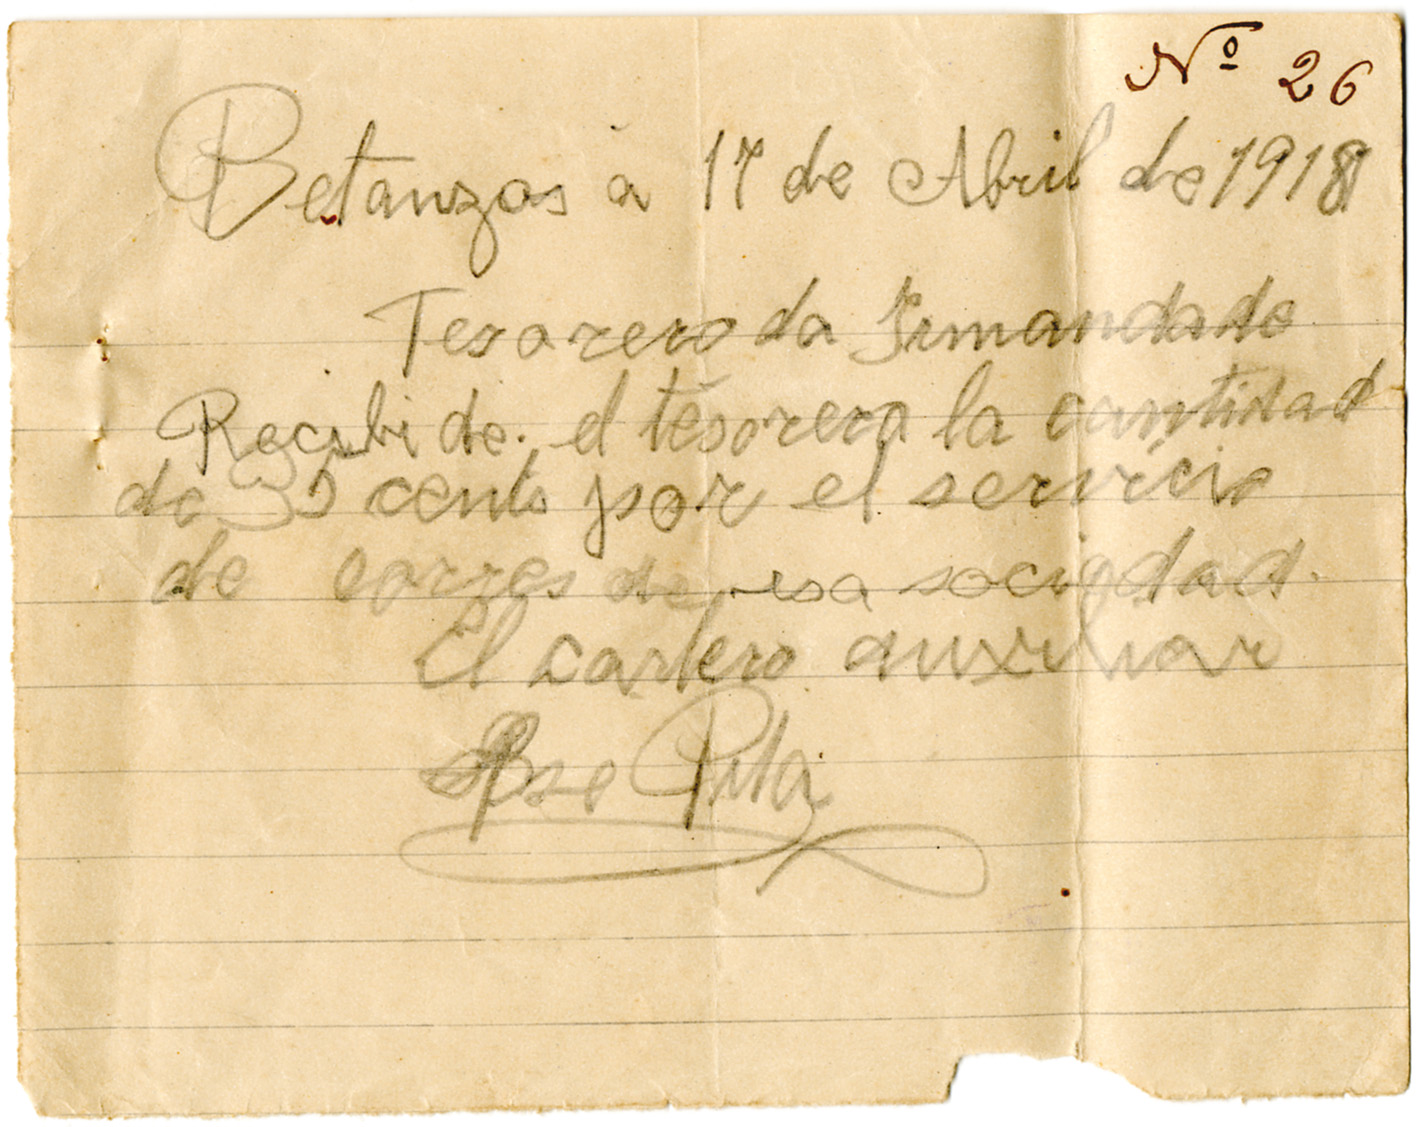 Nº 26
Betanzos a 17 de Abril de 1918
Tesorero da Irmandade
Recibi de el tesorero la cantidad
de 35 cents por el servicio
de corres de esa sociedad.
El cartero auxiliar
Jose Pita